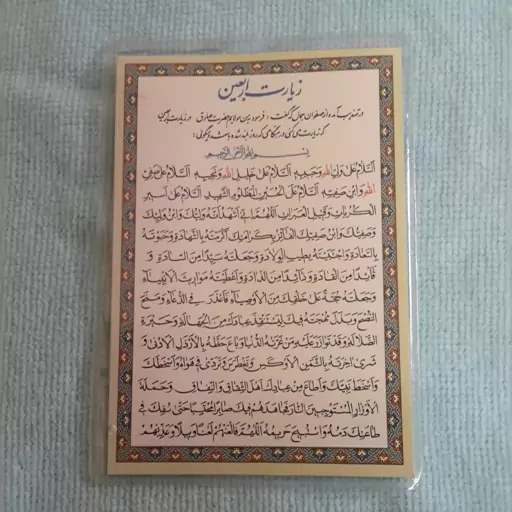 زیارت اربعین
در تهذیب آمده از صفوان جمال که گفت: فرمود بمن مولایم حضرت صادق در زیارت اربعین
که زیارت می‌کنی در هنگامی که روز بلند شده باشد و میگوئی:
بسم الله الرحمن الرحیم
اَلسَّلامُ عَلی وَلِیِّ اللهِ وَحَبیبِهِ اَلسَّلامُ عَلی خَلیلِ اللهِ وَنَجیبِهِ اَلسَّلامُ عَلی صَفِیِّ
اللهِ وَابْنِ صَفِیِّهِ اَلسَّلامُ عَلَی الْحُسَیْنِ الْمَظْلُومِ الشَّهیدِ اَلسَّلامُ عَلی اَسیرِ
الْکُرُباتِ وَقَتیلِ الْعَبَراتِ اَللّهُمَّ اِنّی اَشْهَدُ اَنَّهُ وَلِیُّکَ وَابْنُ وَلِیِّکَ
وَصَفِیُّکَ وَابْنُ صَفِیِّکَ الْفائِزُ بِکَرامَتِکَ اَکْرَمْتَهُ بِالشَّهادَةِ وَحَبَوْتَهُ
بِالسَّعادَةِ وَاجْتَبَیْتَهُ بِطیبِ الْوِلادَةِ وَجَعَلْتَهُ سَیِّداً مِنَ السّادَةِ وَ
قآئِداً مِنَ الْقادَةِ وَذآئِداً مِنَ الذّادَةِ وَاَعْطَیْتَهُ مَواریثَ الْاَنْبِیاءِ
وَجَعَلْتَهُ حُجَّةً عَلی خَلْقِکَ مِنَ الْاَوْصِیاءِ فَاَعْذَرَ فِی الدُّعاءِ وَمَنَحَ
النُّصْحَ وَبَذَلَ مُهْجَتَهُ فیکَ لِیَسْتَنْقِذَ عِبادَکَ مِنَ الْجَهالَةِ وَحَیْرَةِ
الضَّلالَةِ وَقَدْ تَوازَرَ عَلَیْهِ مَنْ غَرَّتْهُ الدُّنْیا وَباعَ حَظَّهُ بِالْاَرْذَلِ الْاَدْنی وَ
شَری اخِرَتَهُ بِالثَّمَنِ الْاَوْکَسِ وَتَغَطْرَسَ وَتَرَدّی فی هَواهُ وَاَسْخَطَکَ
وَاَسْخَطَ نَبِیَّکَ وَاَطاعَ مِنْ عِبادِکَ اَهْلَ الشِّقاقِ وَالنِّفاقِ وَحَمَلَةَ
الْاَوْزارِ الْمُسْتَوْجِبینَ النّارَ فَجاهَدَهُمْ فیکَ صابِراً مُحْتَسِباً حَتّی سُفِکَ فی
طاعَتِکَ دَمُهُ وَاسْتُبیحَ حَریمُهُ اَللّهُمَّ فَالْعَنْهُمْ لَعْناً وَبیلاً وَعَذِّبْهُمْ